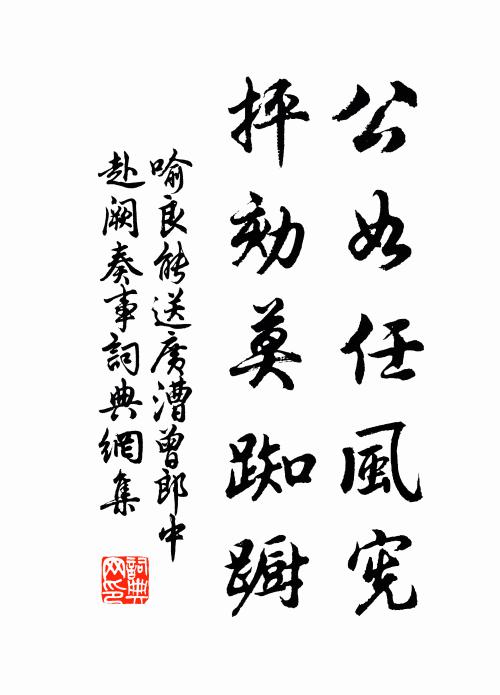 公如任風宪
抨劾莫踟蹰
喻良能送廣漕曾郎中
赴阙奏事詞典網集
詞典网印